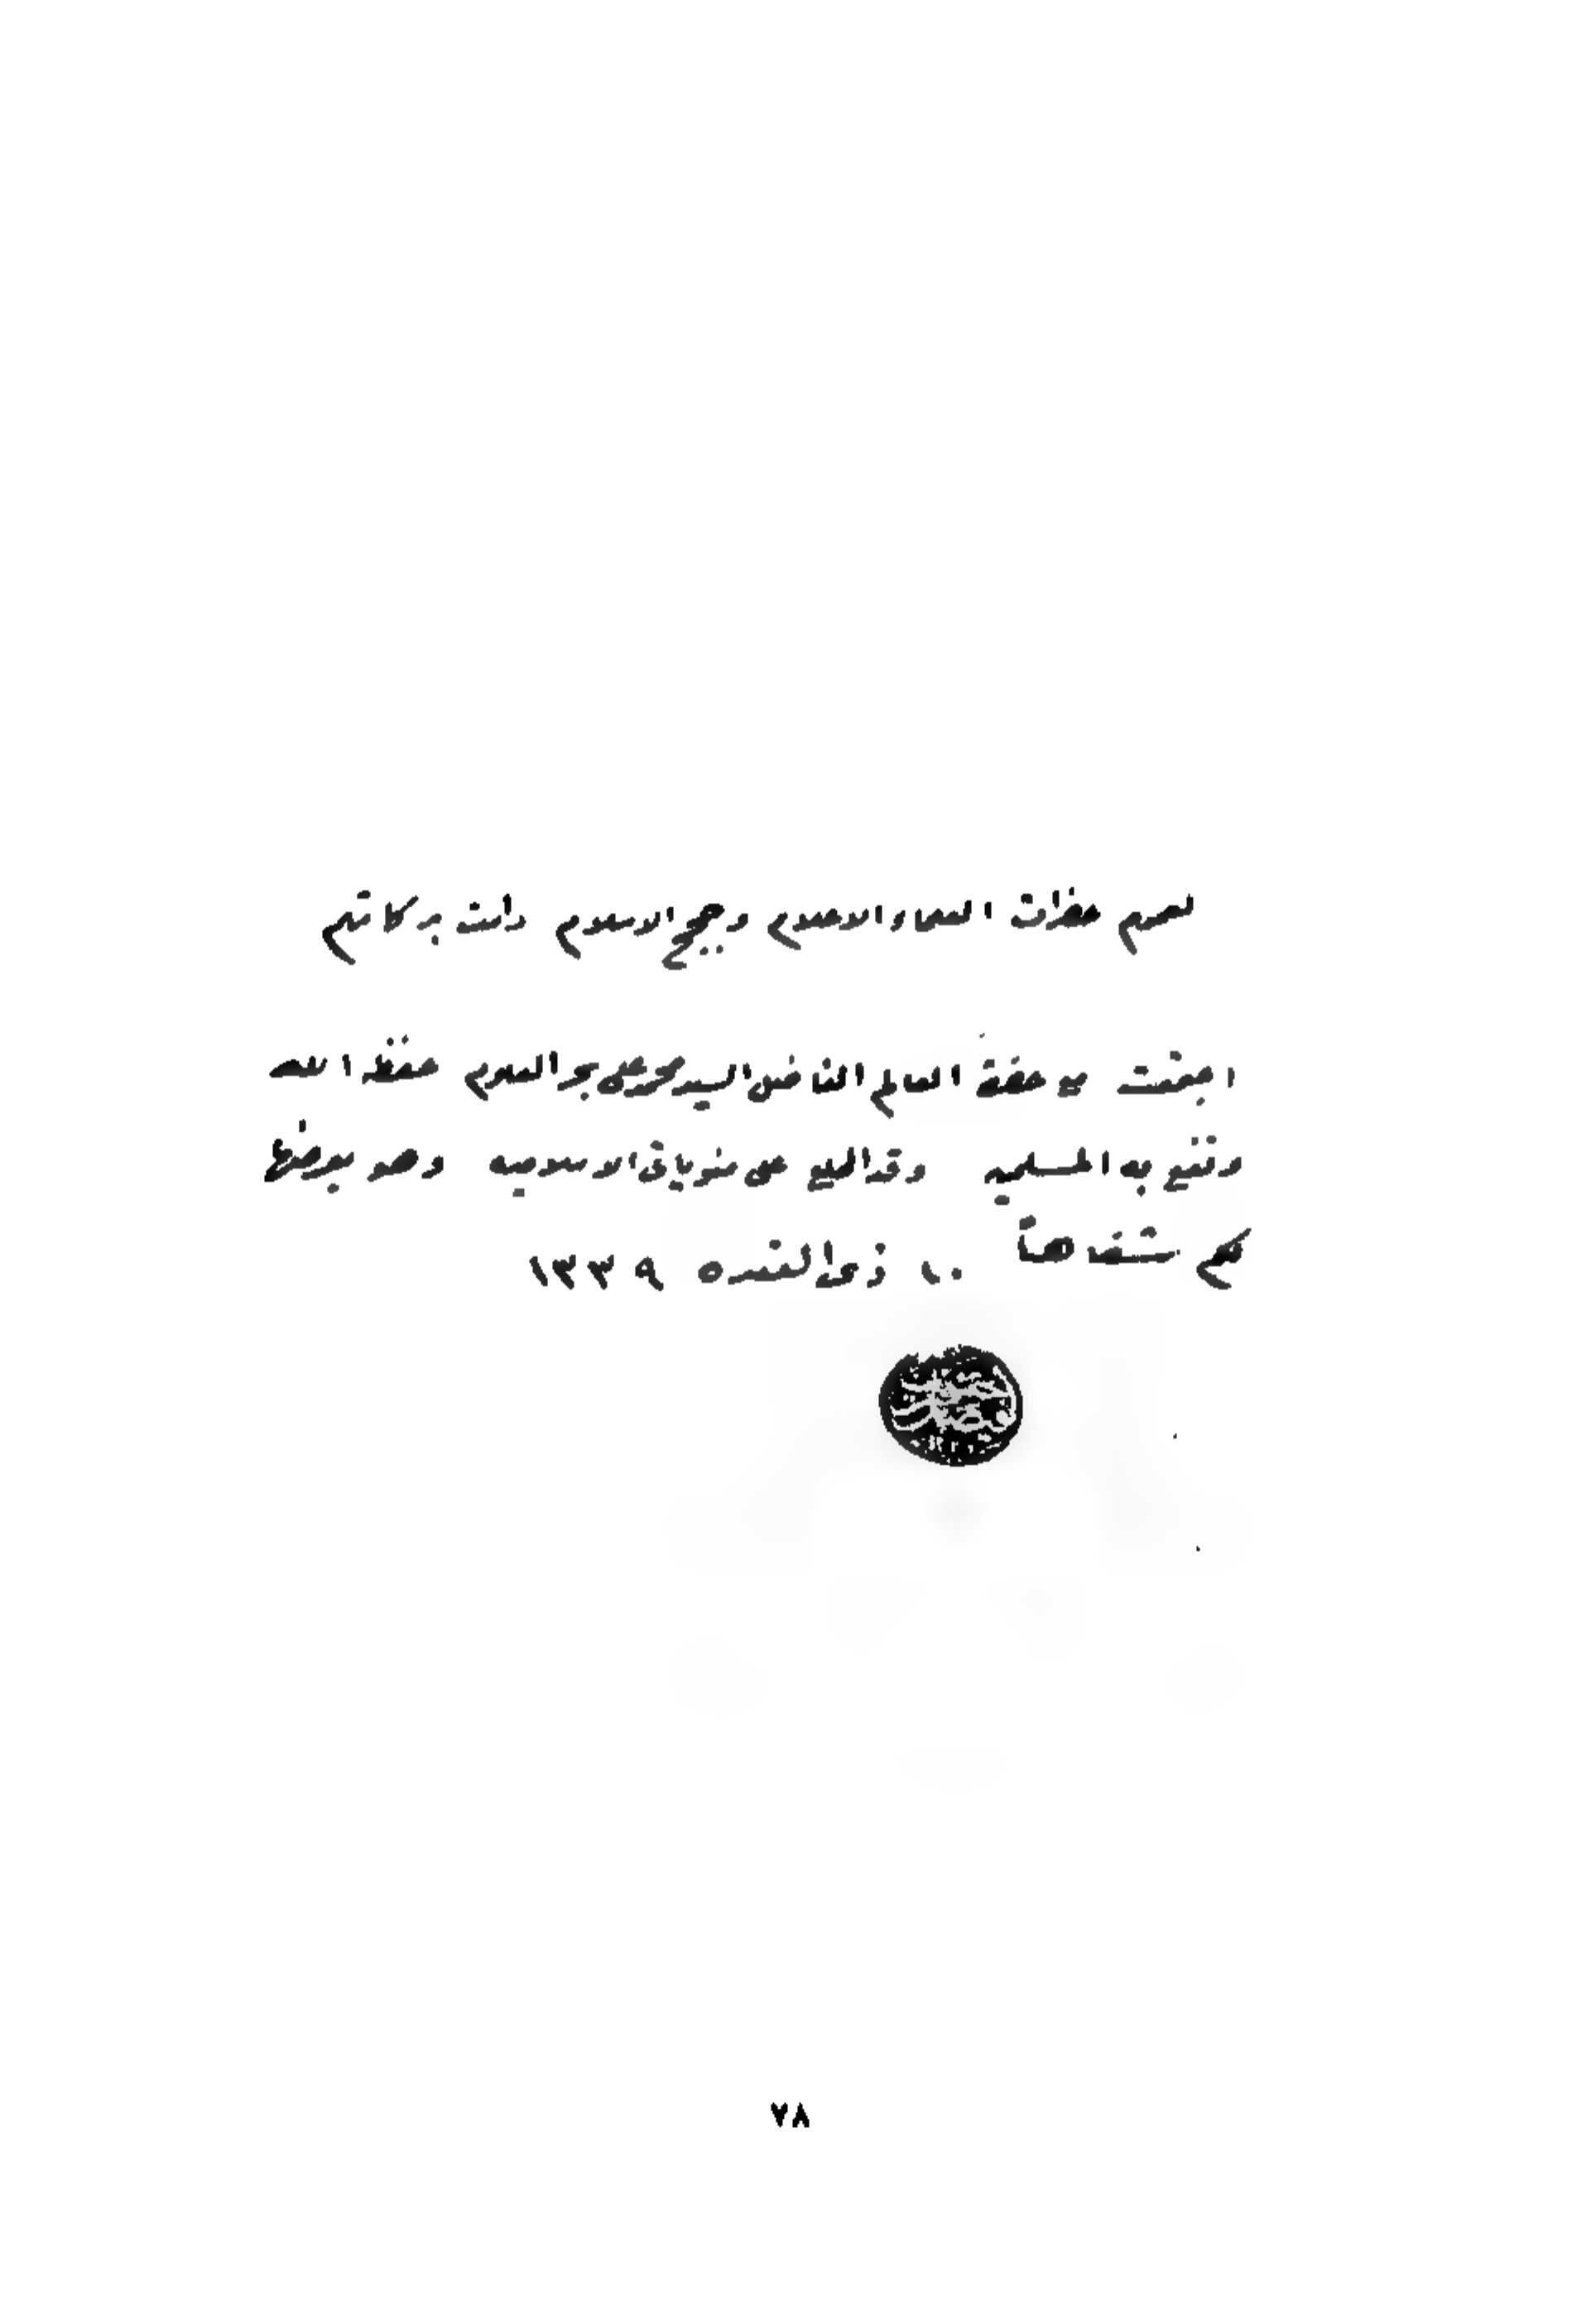 لعموم حضرات العلماء الاعلام وحجج الاسلام دامت بركاتهم
اجتمعت مع حضرة العالم الفاضل السيد محمد علي بحر العلوم حفظه الله
ونفع به المسلمين وقد اطلع على منوياتي الاسلامية وهو سيوضح
لكم شفاهاً ١٠ ذي القعده ١٣٣٩
٧٨